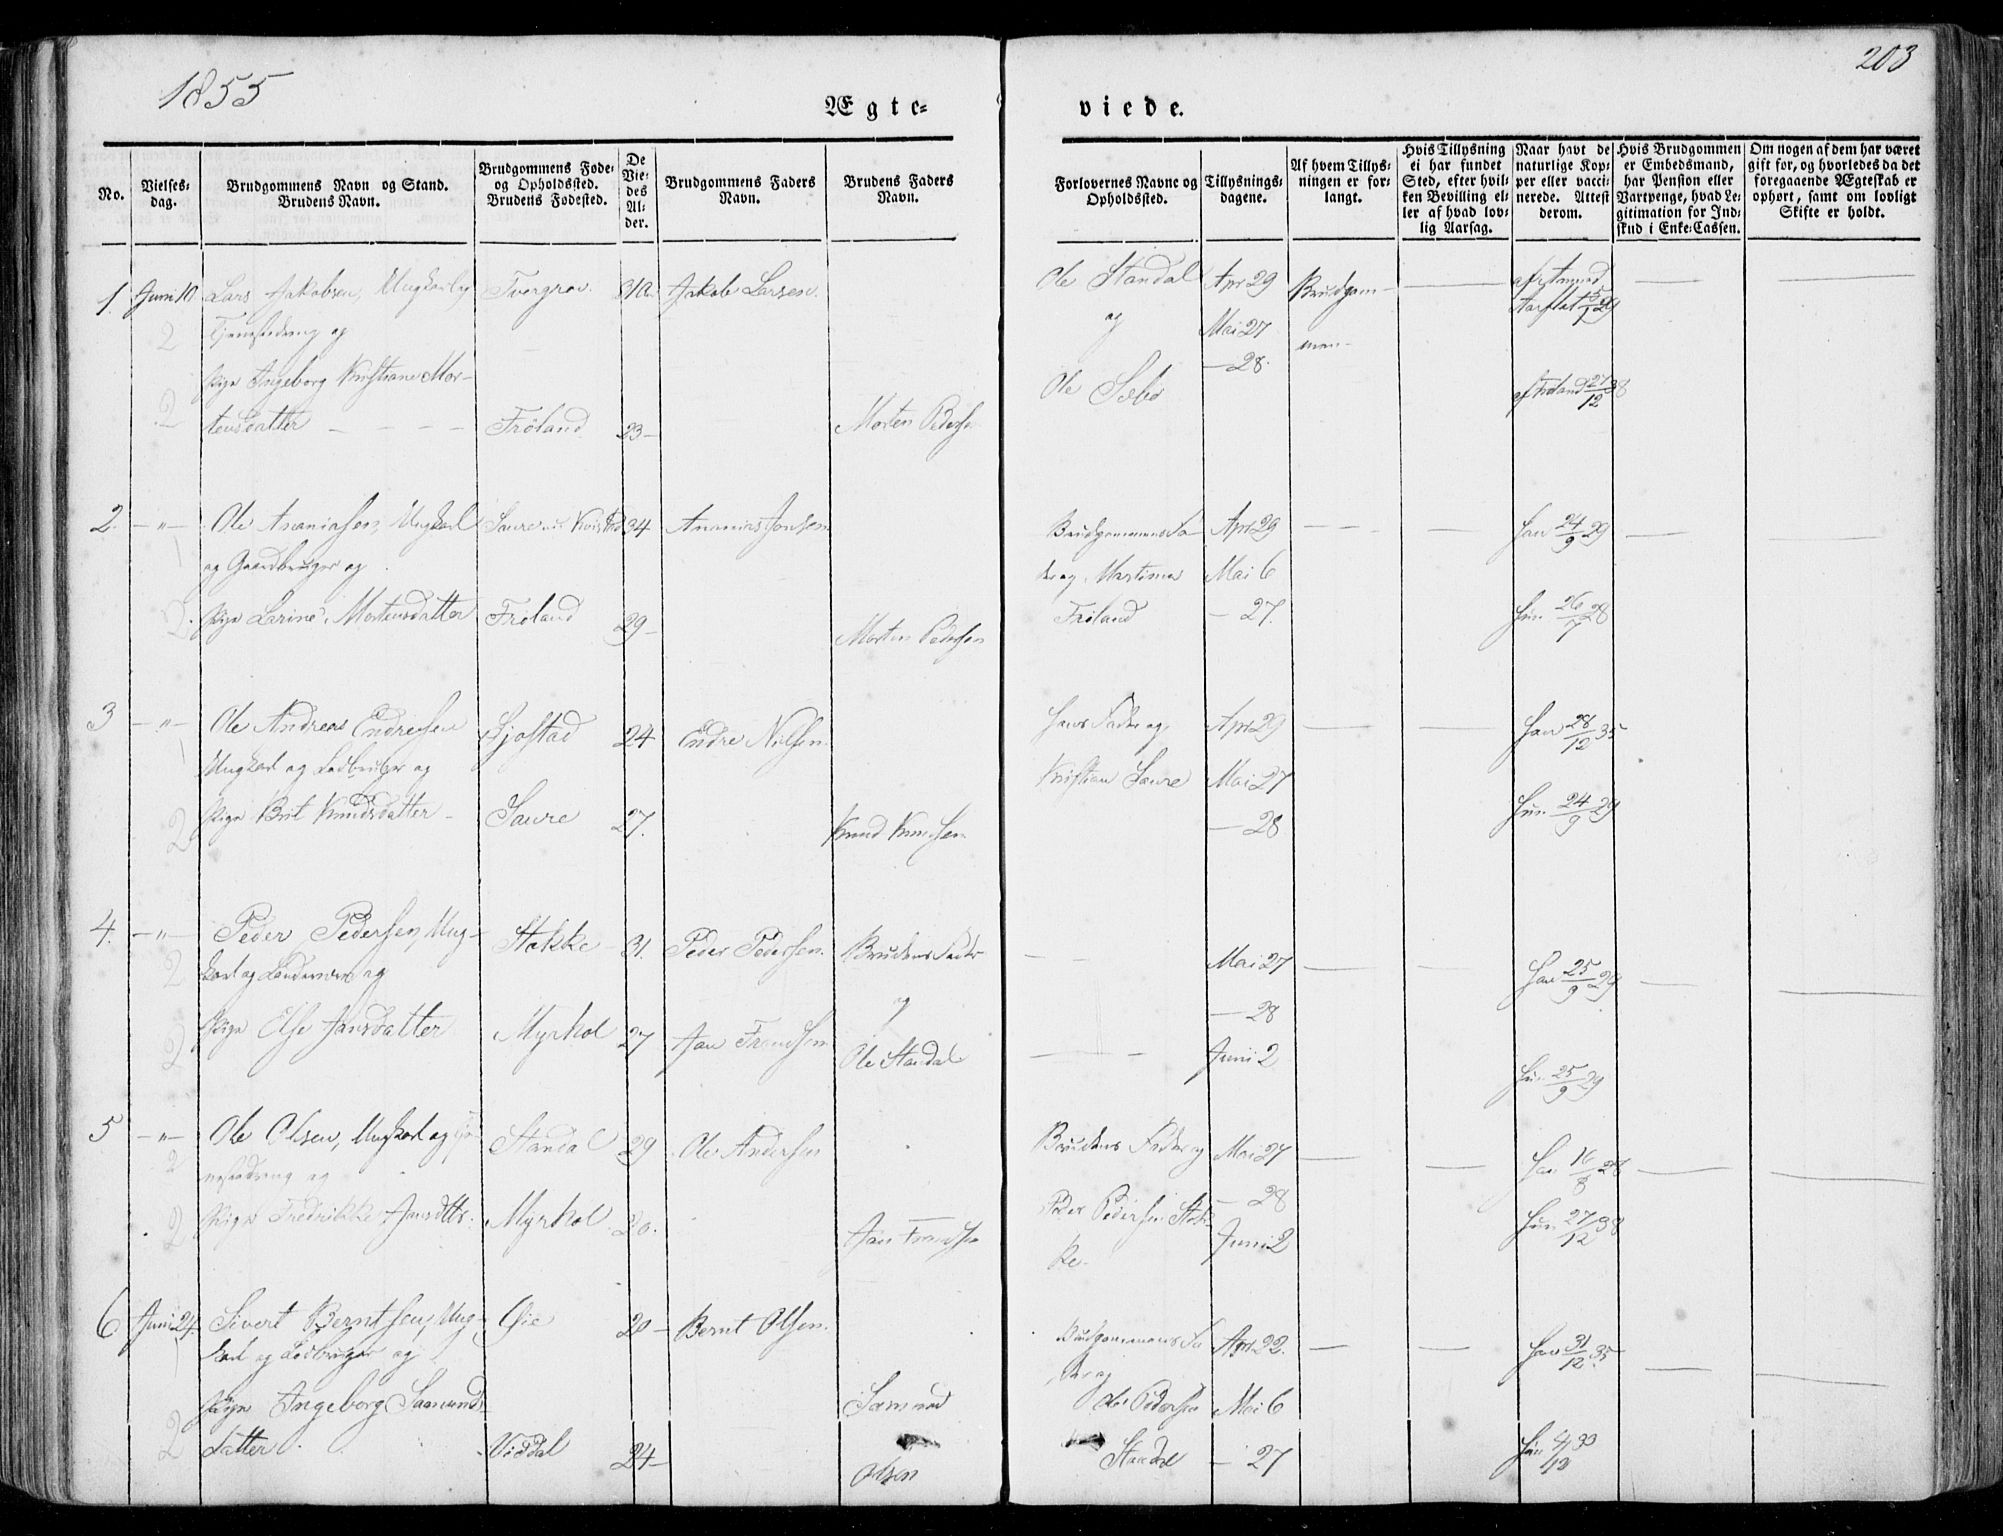 1855
203
Ægte=
viede.
No.
Vielses=
dag.
Brudgommens Navn og Stand.
Brudens Navn.
Brudgommens Føde=
og Opholdssted.
Brudens Fødested.
De
Vie=
des
Al=
der.
Brudgommens Faders
Navn.
Brudens Faders
Navn.
Forlovernes Navne og
Opholdssted.
Tillysnings=
dagene.
Af hvem Tillys=
ningen er for=
langt.
Hvis Tillysning
ei har fundet
Sted, efter hvil=
ken Bevilling el=
ler af hvad lov=
lig Aarsag.
Naar havt de
naturlige Kop=
per eller vacci=
nerede. Attest
derom.
Hvis Brudgommen
er Embedsmand,
har Pension eller
Vartpenge, hvad Le=
gitimation for Ind=
skud i Enke=Cassen.
Om nogen af dem har været
gift før, og hvorledes da det
foregaaende Ægteskab er
ophørt, samt om lovligt
Skifte er holdt.
1. Juni 10 Lars Jakobsen, Ungkarl og
Tjenestedreng og
Pige Ingeborg Kristiane Mor-
tensdatter
Frøland
31
23
Jakob Larsen.
Morten Pedersen
Ole Standal
og
Ole Sæbø
Apr 29
Mai 27
- 28.
Brudgom-
men
2. -"- Ole Ananiasen, Ungkarl
og Gaardbruger og
Pige Larine Mortensdatter
Saure
Frøland
34
29
Ananias Jonsen
Morten Pedersen
Brudgommens Fa-
der og Martinus
Frøland
Apr 29
Mai 6
- 27.
Han 24/9 29
Hun 26/7 28
3 -"- Ole Andreas Endresen
Ungkarl og Ladbruger og
Pige Brit Knudsdatter
Ljøstad
Saure
24
27.
Endre Nilsen.
Knud Knudsen
Hans Fader og
Kristian Saure
Apr 29
Mai 27
- 28
Han 28/12 35
Hun 24/9 29
4. -"- Peder Pedersen, Ung-
karl og Landværn og
Pige Else Jansdatter
Stokke
Myrhol
31.
27
Peder Pedersen.
Jan Frandsen
Brudens Fader
og
Ole Standal
Mai 27
- 28
Juni 2
Han 25/9 29
Hun 25/9 29
5 -"- Ole Olsen, Ungkarl og Tje-
nestedreng og
Pige Fredrikke Jansdtts.
Standal
Myrhol
29
20.
Ole Andersen
Jan Frandsen
Brudens Fader og
Peder Pedersen Stok-
ke.
Mai 27
- 28
Juni 2
Han 16/8 28
Hun 27/12 38
6 Juni 24. Sivert Berntsen, Ung-
karl og Ladbruger og
Pige Ingeborg Samunds
datter
Øie
Viddal
20
24
Bernt Olsen.
Samund
Olsen
Brudgommens Fa
der og
Ole Pedersen
Standal
Apr 22.
Mai 6
- 27
Han 31/12 35
Hun 4/12 30